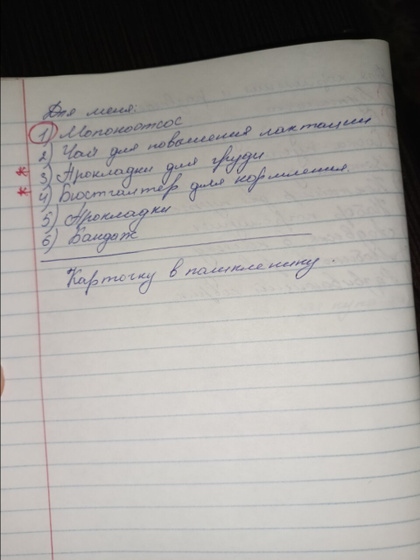 Для меня:
1) Молокоотсос
2) Чай для повышения лактации
* 3) Прокладки для груди
* 4) Бюстгалтер для кормления.
5) Прокладки
6) Бандаж
Карточку в поликлинику.